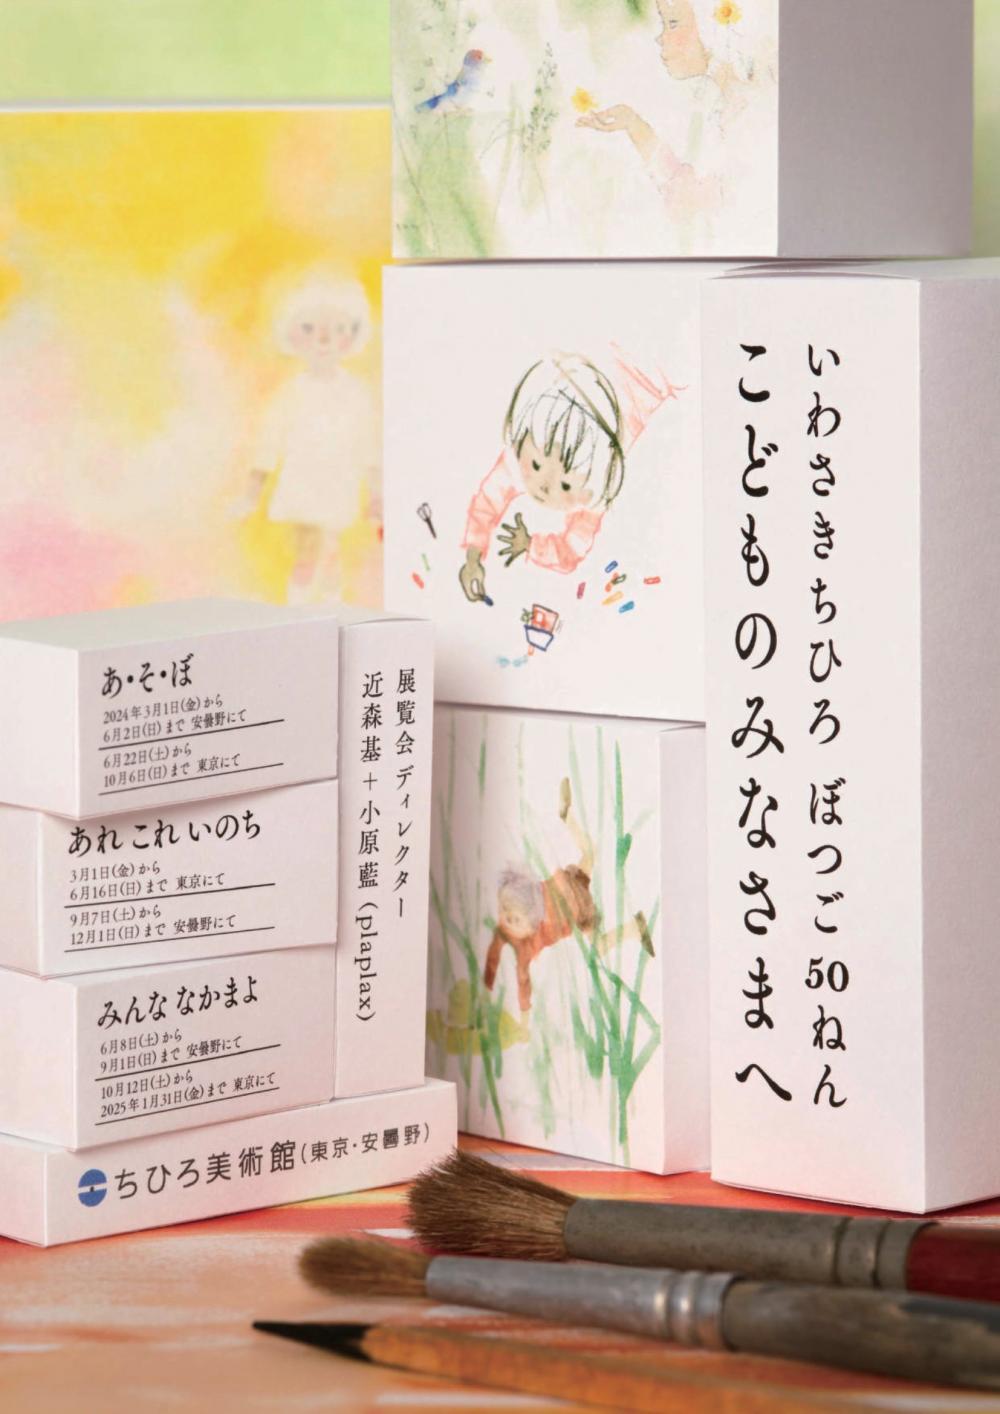 いわさきちひろ ぼつご50ねん
こどものみなさまへ
あ・そ・ぼ
2024年3月1日(金)から
6月2日(日)まで 安曇野にて
6月22日(土)から
10月6日(日)まで 東京にて
あれ これ いのち
3月1日(金)から
6月16日(日)まで 東京にて
9月7日(土)から
12月1日(日)まで 安曇野にて
みんな なかまよ
6月8日(土)から
9月1日(日)まで 安曇野にて
10月12日(土)から
2025年1月31日(金)まで 東京にて
展覧会ディレクター
近森基+小原藍(plaplax)
ちひろ美術館(東京・安曇野)